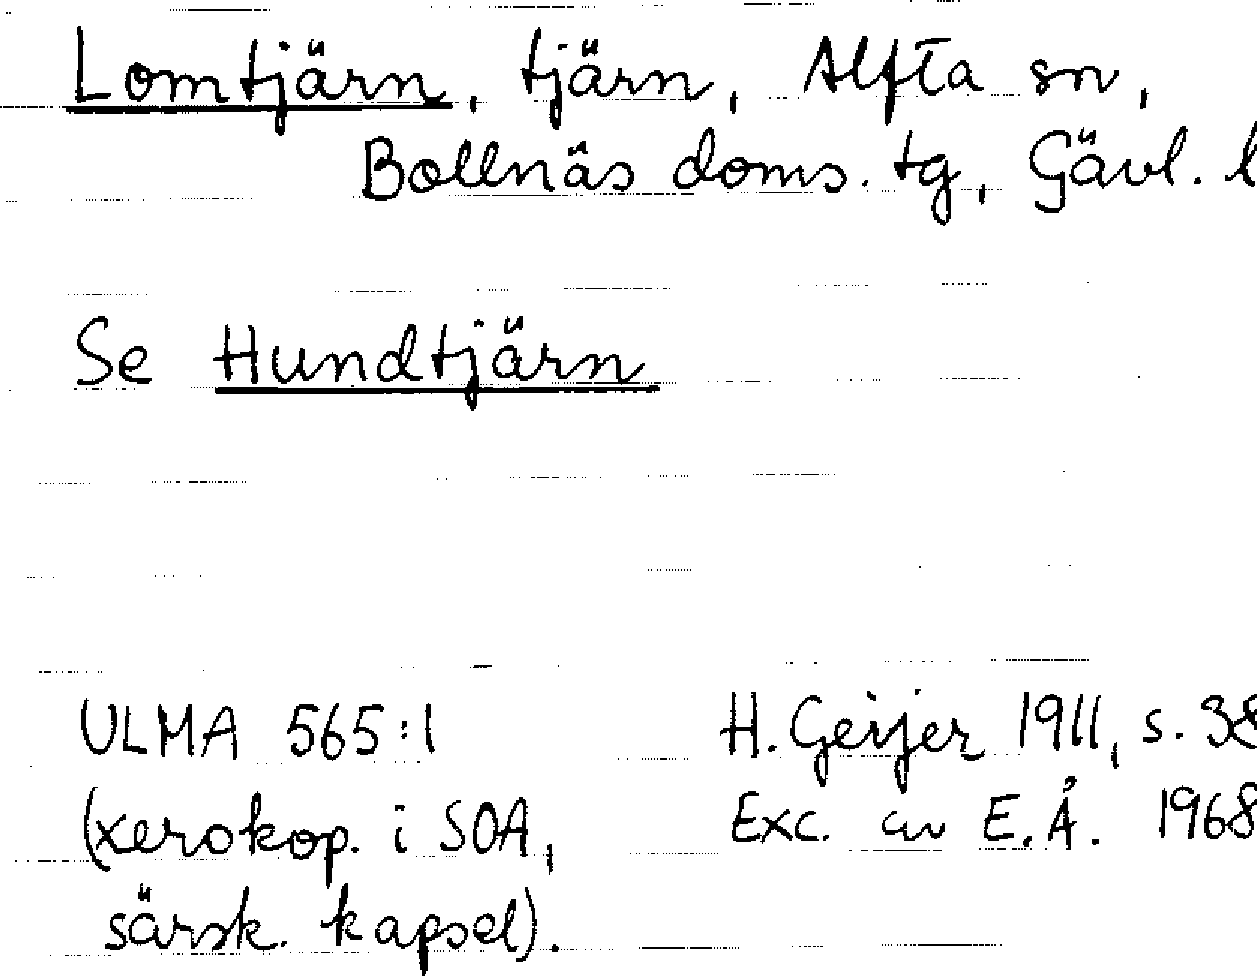 Lomtjärn, tjärn, Alfta sn,
Bollnäs doms. tg, Gävl. l
Se Hundtjärn
ULMA 565:1
(xerokop. i SOA,
särsk. kapsel).
H. Geijer 1911, s. 38
Exc. av E.Å. 1968